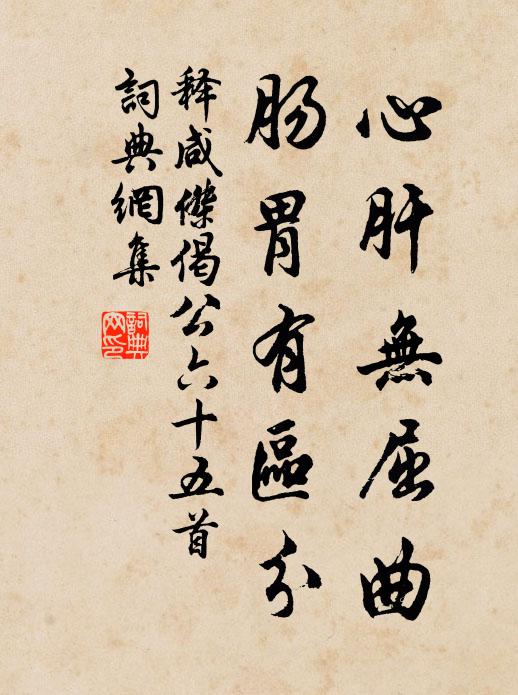 心肝無屈曲
肠胃有區分
释咸傑偈公六十五首
詞典網集
詞典網印